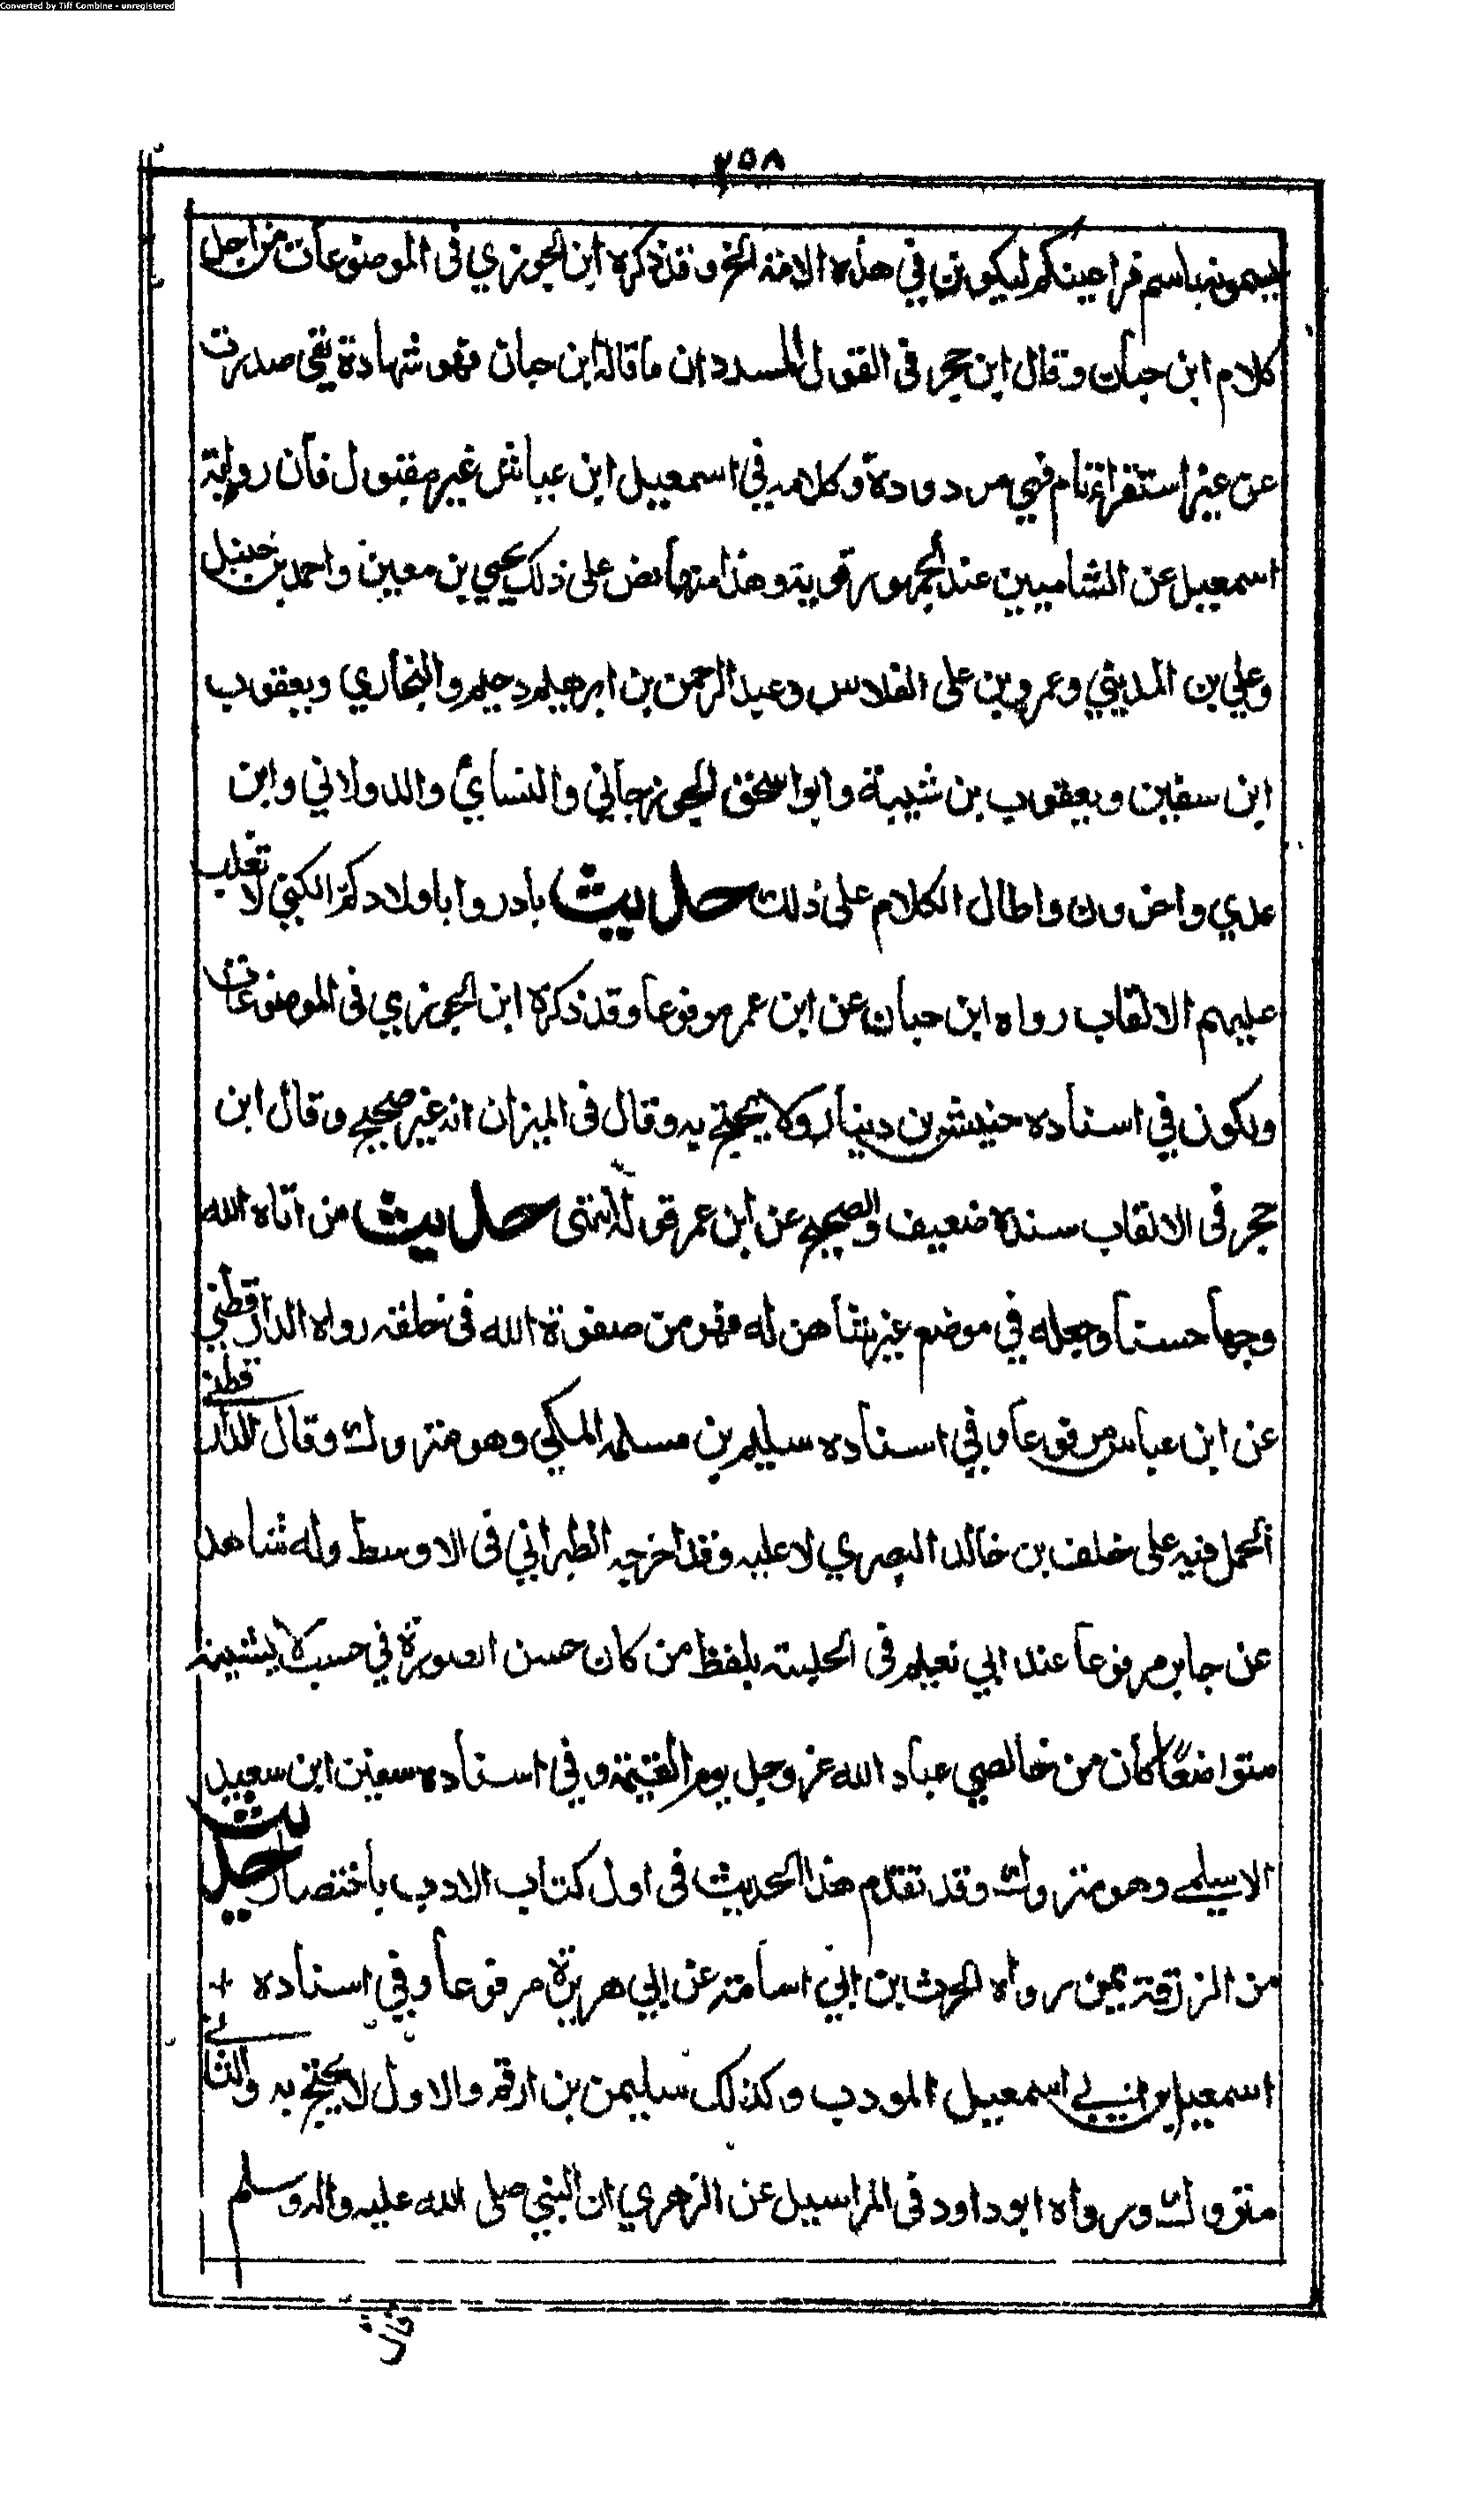 Converted by Tiff Combine - unregistered
٢٥٨
يسمونه باسم فراعينكم ليكونن في هذه الامة الخ وقد ذكره ابن الجوزي فى الموضوعات من اجل
كلام ابن حبان وقال ابن حجر فى القول المسدد ان ما قاله ابن حبان فهو شهادة نفي صدرت
عن غير استقراء تام فهي مردودة وكلامه في اسمعيل ابن عياش غير مقبول فان رواية
اسمعيل عن الشاميين عند الجمهور قوية وهذا منها نص على ذلك يحيي بن معين واحمد بن حنبل
وعلي بن المديني وعمرو بن على الفلاس وعبد الرحمن بن ابرهيم دحيم والبخاري ويعقوب
ابن سفين ويعقوب بن شيبة وابو اسحق الجوزجاني والنسائي والدولاني وابن
عدي واخرون واطال الكلام على ذلك حديث بادروا باولادكم الكنى لا تغلب
عليهم الالقاب رواه ابن حبان عن ابن عمر مرفوعا وقد ذكره ابن الجوزي فى الموضوعات
ولكون في اسناده حنيش بن دينار ولا يحتج به وقال فى الميزان انه غير صحيح وقال ابن
حجر فى الالقاب سنده ضعيف والصحيح عن ابن عمر قوله انتهى حديث من اتاه الله
وجها حسنا وجعله في موضع غير شاهن له فهو من صفوة الله فى خلقه رواه الدارقطني
عن ابن عباس مرفوعا وفي اسناده سليم بن مسلم المكي وهو متروك وقال الدارقطنى
الحمل فيه على خلف بن خالد البصري لا عليه وقد اخرجه الطبراني فى الاوسط وله شاهد
عن جابر مرفوعا عند ابي نعيم فى الحلية بلفظ من كان حسن الصورة في حسب لا يشينه
متواضعا كان من خالصي عباد الله عز وجل يوم القيمة وفي اسناده سفين ابن سعيد
الاسلمي وهو متروك وقد تقدم هذا الحديث فى اول كتاب الادب باختصار حديث
من الزرقة يمن رواه الحرث بن ابي اسامة عن ابي هريرة مرفوعا وفي اسناده +
اسمعيل بن ابي اسمعيل المودب وكذلك سليمن بن ارقم والاول لا يحتج به والثانى
متروك ورواه ابو داود فى المراسيل عن الزهري ان النبي صلى الله عليه واله وسلم